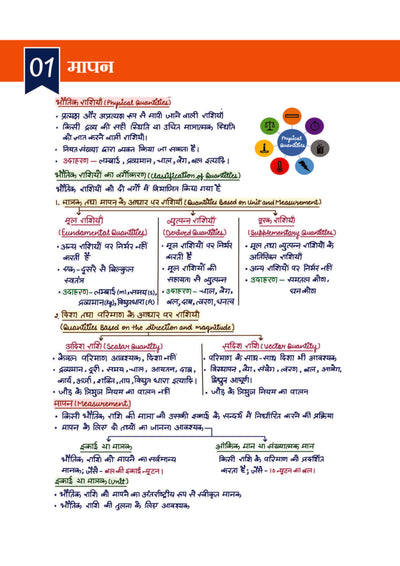 01 मापन
भौतिक राशियाँ (Physical Quantities)
• प्रत्यक्ष और अप्रत्यक्ष रूप से मापी जाने वाली राशियाँ
• किसी द्रव्य की सही स्थिति या उचित मात्रात्मक स्थिति
को ज्ञात करने वाली राशियाँ।
• नियत संख्या द्वारा व्यक्त किया जा सकता है।
• उदाहरण – लम्बाई, द्रव्यमान, चाल, वेग, बल इत्यादि।
Physical
Quantities
भौतिक राशियों का वर्गीकरण (Classification of Quantities)
भौतिक राशियों को दो वर्गों में विभाजित किया गया है
1. मात्रक तथा मापन के आधार पर राशियाँ (Quantities Based on Unit and Measurement)
मूल राशियाँ
(Fundamental Quantities)
• अन्य राशियों पर निर्भर नहीं
करती हैं
• एक-दूसरे से बिल्कुल
स्वतंत्र
• उदाहरण – लम्बाई (m) समय (s),
द्रव्यमान (kg), विद्युतधारा (A)
व्युत्पन्न राशियाँ
(Derived Quantities)
• मूल राशियों पर निर्भर
करती हैं
• मूल राशियों की
सहायता से व्युत्पन्न
• उदाहरण – चाल, वेग,
बल, दाब, त्वरण, घनत्व
पूरक राशियाँ
(Supplementary Quantities)
• मूल तथा व्युत्पन्न राशियों के
अतिरिक्त राशियाँ
• अन्य राशियों पर निर्भर नहीं
• उदाहरण – समतल कोण,
घन कोण
2. दिशा तथा परिमाण के आधार पर राशियाँ
(Quantities Based on the direction and magnitude)
अदिश राशि (Scalar Quantity)
• केवल परिमाण आवश्यक, दिशा नहीं
• द्रव्यमान, दूरी, समय, चाल, आयतन, दाब,
कार्य, ऊर्जा, शक्ति, ताप, विद्युत धारा इत्यादि।
• जोड़ के त्रिभुज नियम का पालन नहीं
सदिश राशि (Vector Quantity)
• परिमाण के साथ-साथ दिशा भी आवश्यक
• विस्थापन, वेग, संवेग, त्वरण, बल, आवेग,
द्विध्रुव आघूर्ण।
• जोड़ के त्रिभुज नियम का पालन
मापन (Measurement)
• किसी भौतिक राशि की मात्रा को उसकी इकाई के सन्दर्भ में निर्धारित करने की प्रक्रिया
• मापन के लिए दो तथ्यों का जानना आवश्यक
इकाई या मात्रक
भौतिक राशि की मापन का सर्वमान्य
मानक; जैसे – बल की इकाई न्यूटन।
आंकिक मान या संख्यात्मक मान
किसी राशि के परिमाण को प्रदर्शित
करता है; जैसे – 10 न्यूटन का बल।
इकाई या मात्रक (Unit)
• भौतिक राशि को मापने का अंतर्राष्ट्रीय रूप से स्वीकृत मानक
• भौतिक राशि की तुलना के लिए आवश्यक